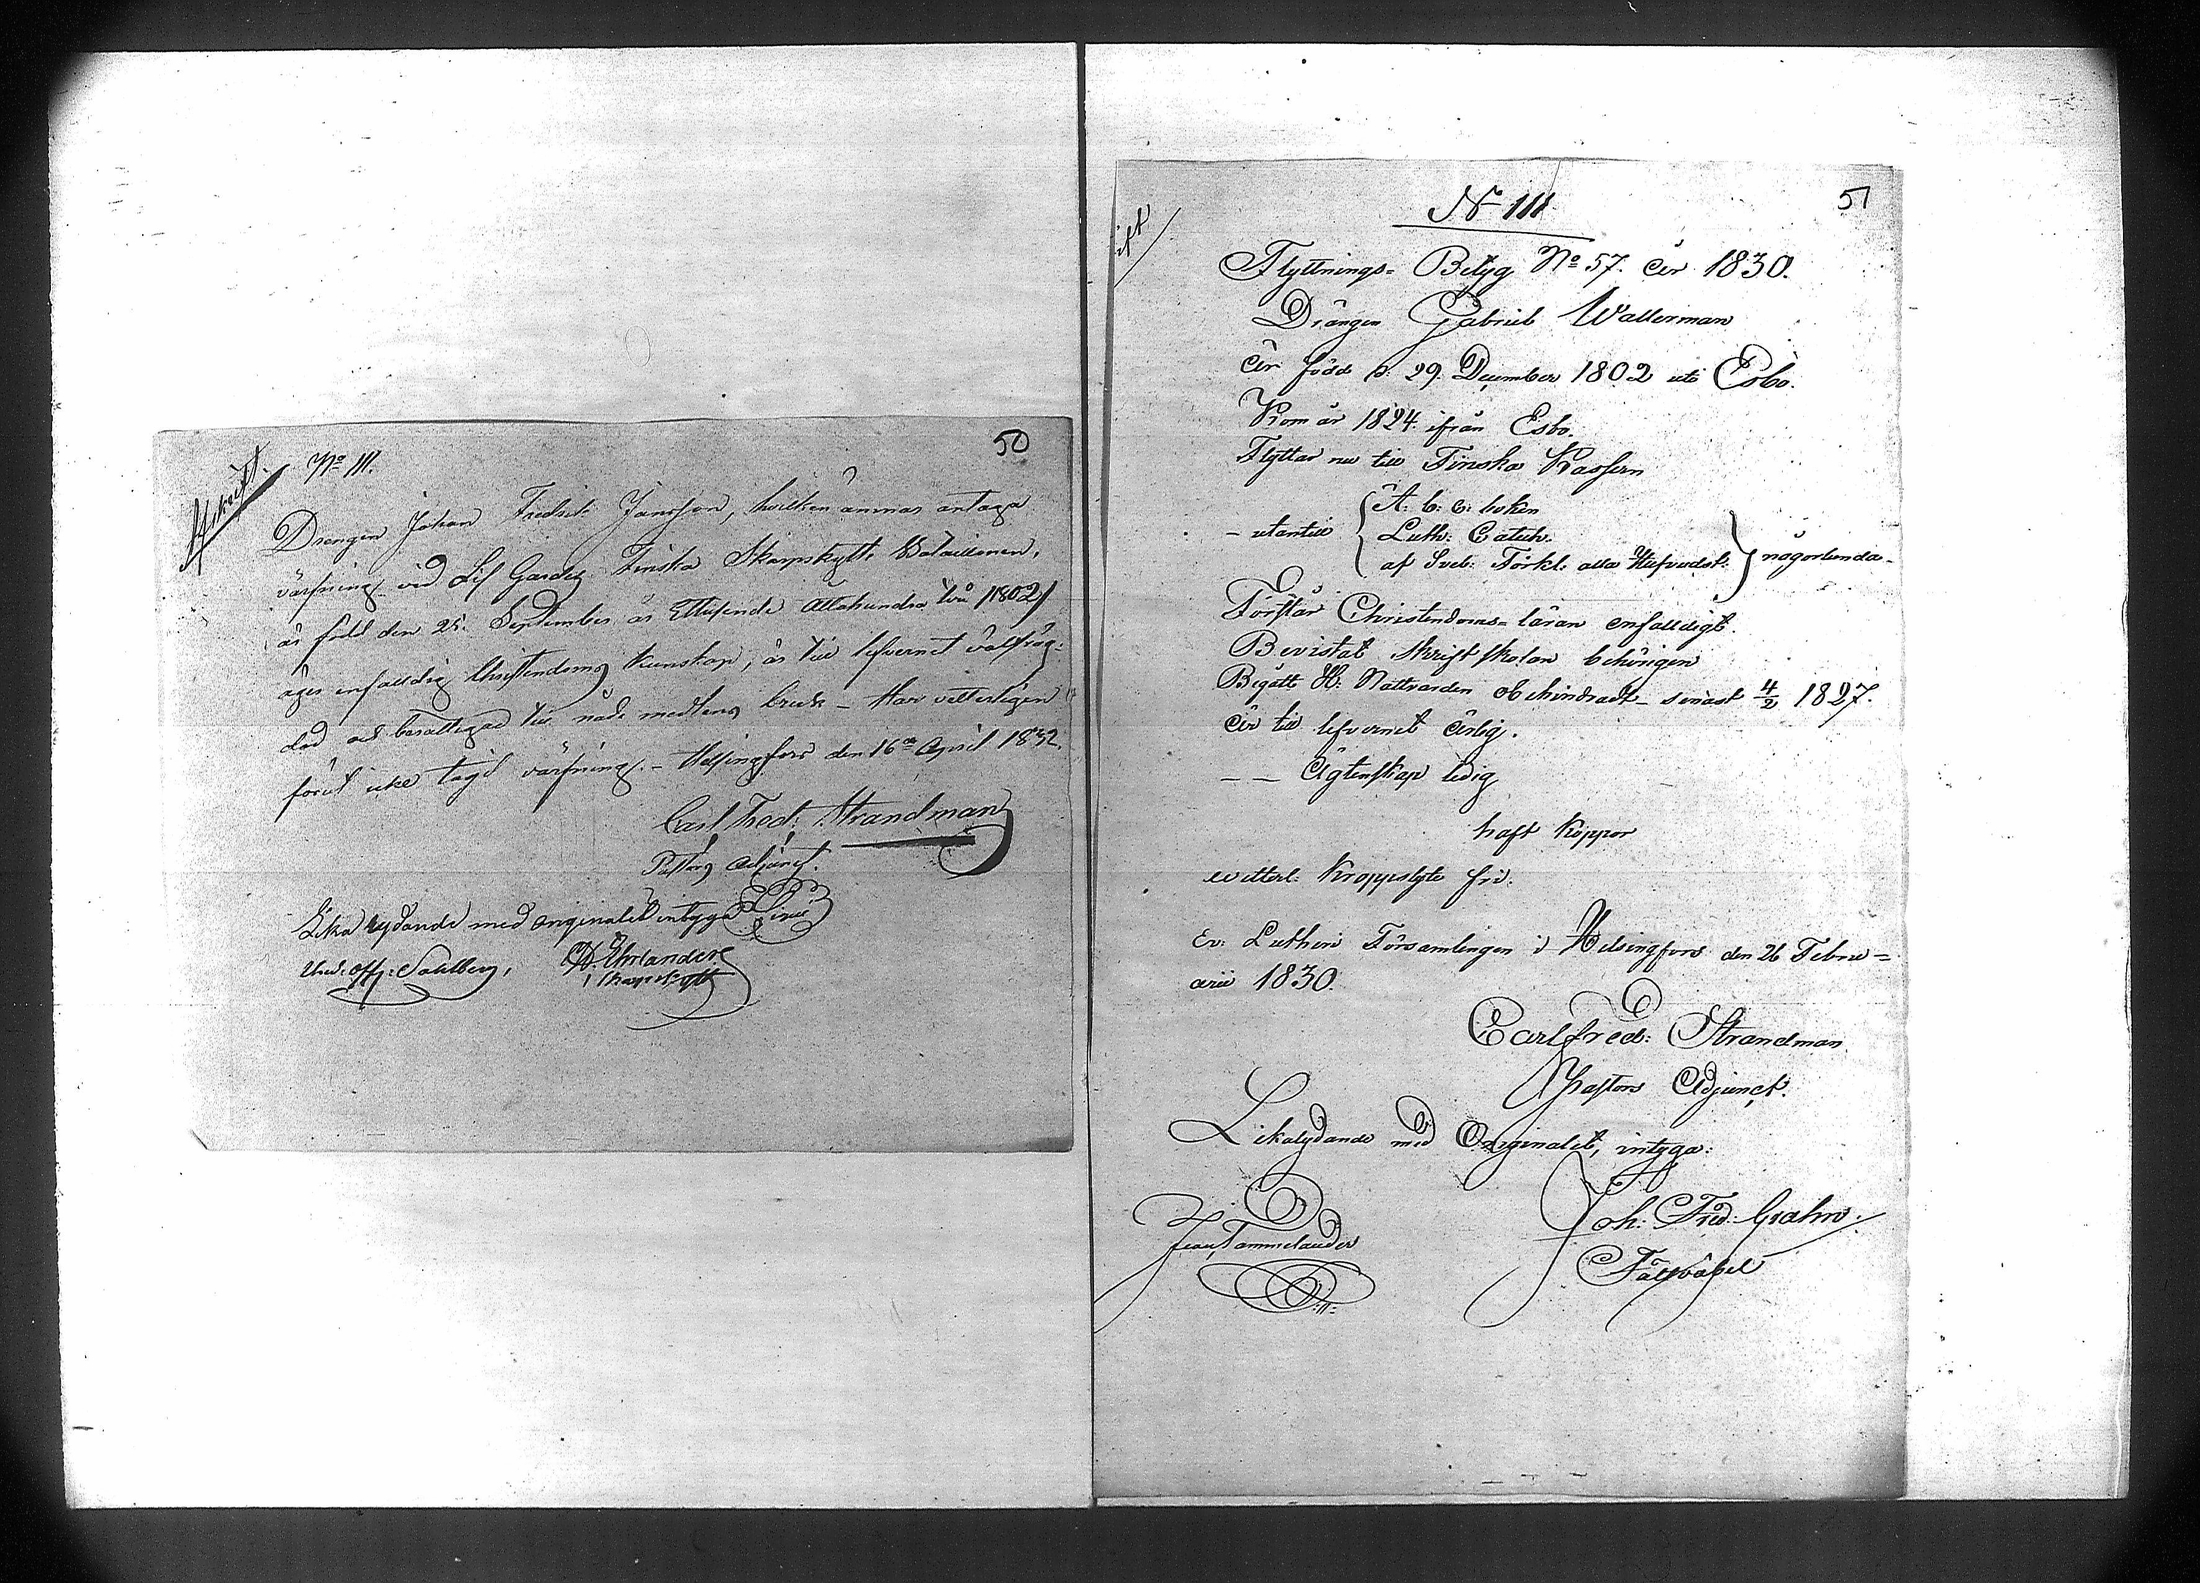 50
Afskrift.
No 111.
Drengen Johan Fredrik Jansson, hvilken ämnar antaga
värfning vid Lif Gardes Finska Skarpskytt Bataillonen,
är född den 25. September år Ettusende Åttahundra två /1802/
äger enfalldig Christendoms kunskap, är till lefvernet välfräg-
dad och berättigad till nåde medlens bruk – Har vetterligen
förut icke tagit värfning. – Helsingfors den 16de April 1832.
Carl Fred: Strandman
Pastors Adjunct.
Lika lydande med originalet intyga
Und: Off: Sahlberg, Ehrlander
Skarpskytt
51
ift
No 111
Flyttnings= Betyg No 57. år 1830.
Drängen Gabriel Wallerman
är född d: 29. December 1802 uti Esbo.
Kom år 1824 ifrån Esbo.
Flyttar nu till Finska Kasern
– utantill A. b. c. boken
Luth: Catech:
af Sveb: Förkl: alla Hufvudst: någorlunda.
Förstår Christendoms= läran enfalldigt.
Bevistat Skriftskolan behörigen
Begått H: Nattvarden obehindradt – senast 4/2 1827.
är till lefvernet ärlig.
– – Ägtenskap ledig
haft Koppor
vetterl: Kroppslyte fri.
Ev: Lutheri Församlingen i Helsingfors den 26 Febru=
arii 1830.
Carl Fred: Strandman
Pastors Adjunct.
Likalydande med Originalet, intyga:
Joh: Fred: Grahn.
Fältväbel
Jean Tammelander